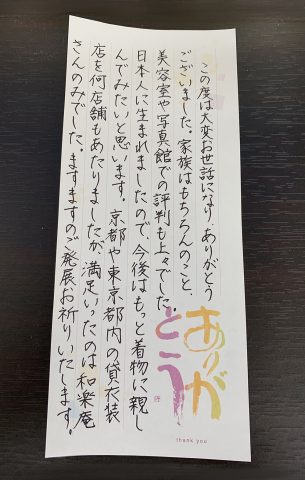 この度は大変お世話になり、ありがとう
ございました。家族はもちろんのこと、
美容室や写真館での評判も上々でした。
日本人に生まれましたので、今後はもっと着物に親し
んでみたいと思います。京都や東京都内の貸衣装
店を何店舗もあたりましたが、満足いったのは和楽庵
さんのみでした。ますますのご発展お祈りいたします。
ありが
とう
thank you